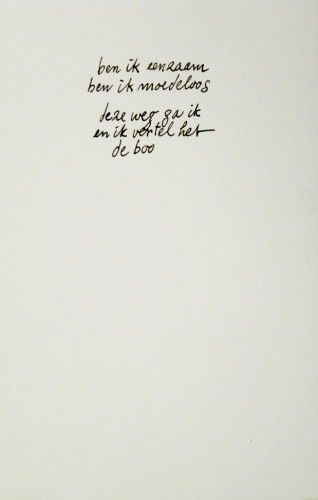 ben ik eenzaam
ben ik moedeloos
deze weg ga ik
en ik vertel het
de boo